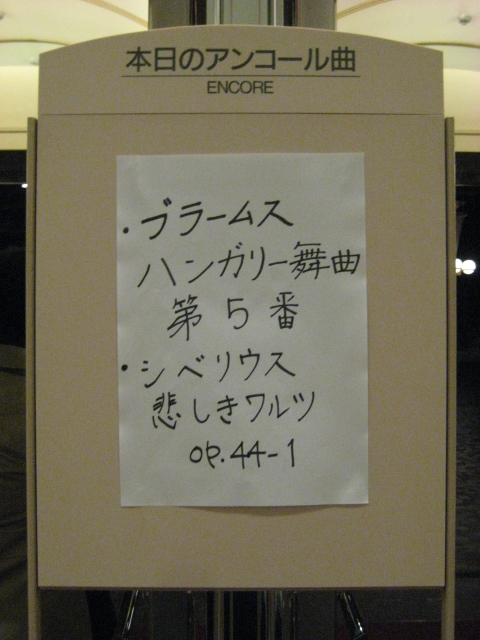 本日のアンコール曲
ENCORE
・ブラームス
ハンガリー舞曲
第5番
・シベリウス
悲しきワルツ
OP.44-1